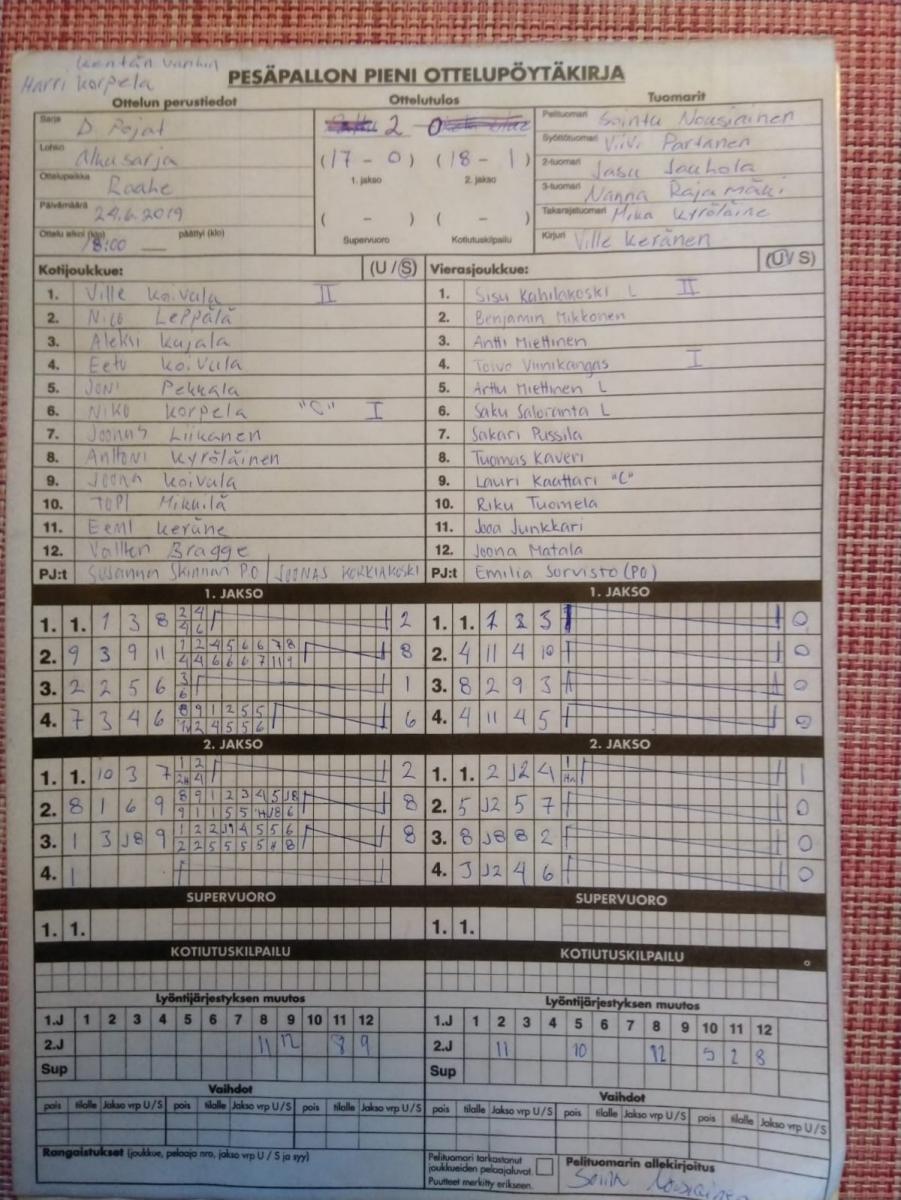 Kentän vanhin
Harri Korpela
PESÄPALLON PIENI OTTELUPÖYTÄKIRJA
Ottelun perustiedot
Ottelutulos
Tuomarit
Sarja D. Pojat
Lohko Alkusarja
Ottelupaikka Raahe
Päivämäärä 24.6.2019
Ottelu alkoi (klo) 18:00 päättyi (klo)
2 0
(17 - 0) (18 - 1)
1. jakso 2. jakso
( - ) ( - )
Supervuoro Kotiutuskilpailu
Pelituomari Sointu Nousiainen
Syöttötuomari Viivi Partanen
2-tuomari Jasu Jauhola
3-tuomari Nanna Rajamäki
Takarajatuomari Mika Kyröläine
Kirjuri Ville Keränen
Kotijoukkue: (U / S)
1. Ville Koivula II
2. Nico Leppälä
3. Aleksi Kujala
4. Eetu Koivula
5. Joni Pekkala
6. Niko Korpela "C" I
7. Joonas Liikanen
8. Anttoni Kyröläinen
9. Joona Koivula
10. Topi Mikkilä
11. Eemi Keräne
12. Valtten Bragge
PJ:t Susanna Skinnari P.O / JOONAS KORKIAKOSKI
Vierasjoukkue: (U / S)
1. Sisu Kahilakoski L II
2. Benjamin Mikkonen
3. Antti Miettinen
4. Toivo Viinikangas I
5. Arttu Miettinen L
6. Saku Saloranta L
7. Sakari Pussila
8. Tuomas Kaveri
9. Lauri Kaattari "C"
10. Riku Tuomela
11. Jooa Junkkari
12. Joona Matala
PJ:t Emilia Sorvisto (PO)
1. JAKSO
1. 1. 1 3 8 2 4 2
4 6
2. 9 3 9 11 1 2 4 5 6 6 7 8 8
4 4 6 6 6 7 11 9
3. 2 2 5 6 3 1
6
4. 7 3 4 6 8 9 1 2 5 5 6
2 4 5 5 6
1. JAKSO
1. 1. 1 2 3 0
2. 4 11 4 10 0
3. 8 2 9 3 0
4. 4 11 4 5 0
2. JAKSO
1. 1. 10 3 7 1 2 2
2H 4
2. 8 1 6 9 8 9 1 2 3 4 5 J8 8
9 1 1 5 5 H J8 6
3. 1 3 J8 9 1 2 2 J9 4 5 5 6 8
2 2 5 5 5 5 H 8
4. 1
2. JAKSO
1. 1. 2 J2 4 1 1
2. 5 J2 5 7 0
3. 8 J8 8 2 0
4. 3 J2 4 6 0
SUPERVUORO
1. 1.
SUPERVUORO
1. 1.
KOTIUTUSKILPAILU
KOTIUTUSKILPAILU
Lyöntijärjestyksen muutos
1.J 1 2 3 4 5 6 7 8 9 10 11 12
2.J 11 12 8 9
Sup
Lyöntijärjestyksen muutos
1.J 1 2 3 4 5 6 7 8 9 10 11 12
2.J 11 10 12 5 2 8
Sup
Vaihdot
pois tilalle Jakso vrp U / S pois tilalle Jakso vrp U / S pois tilalle Jakso vrp U / S
Vaihdot
pois tilalle Jakso vrp U / S pois tilalle Jakso vrp U / S pois tilalle Jakso vrp U / S
Rangaistukset (joukkue, pelaaja nro, jakso vrp U / S ja syy)
Pelituomari tarkastanut
joukkueiden pelaajaluvat.
Puutteet merkitty erikseen.
Pelituomarin allekirjoitus